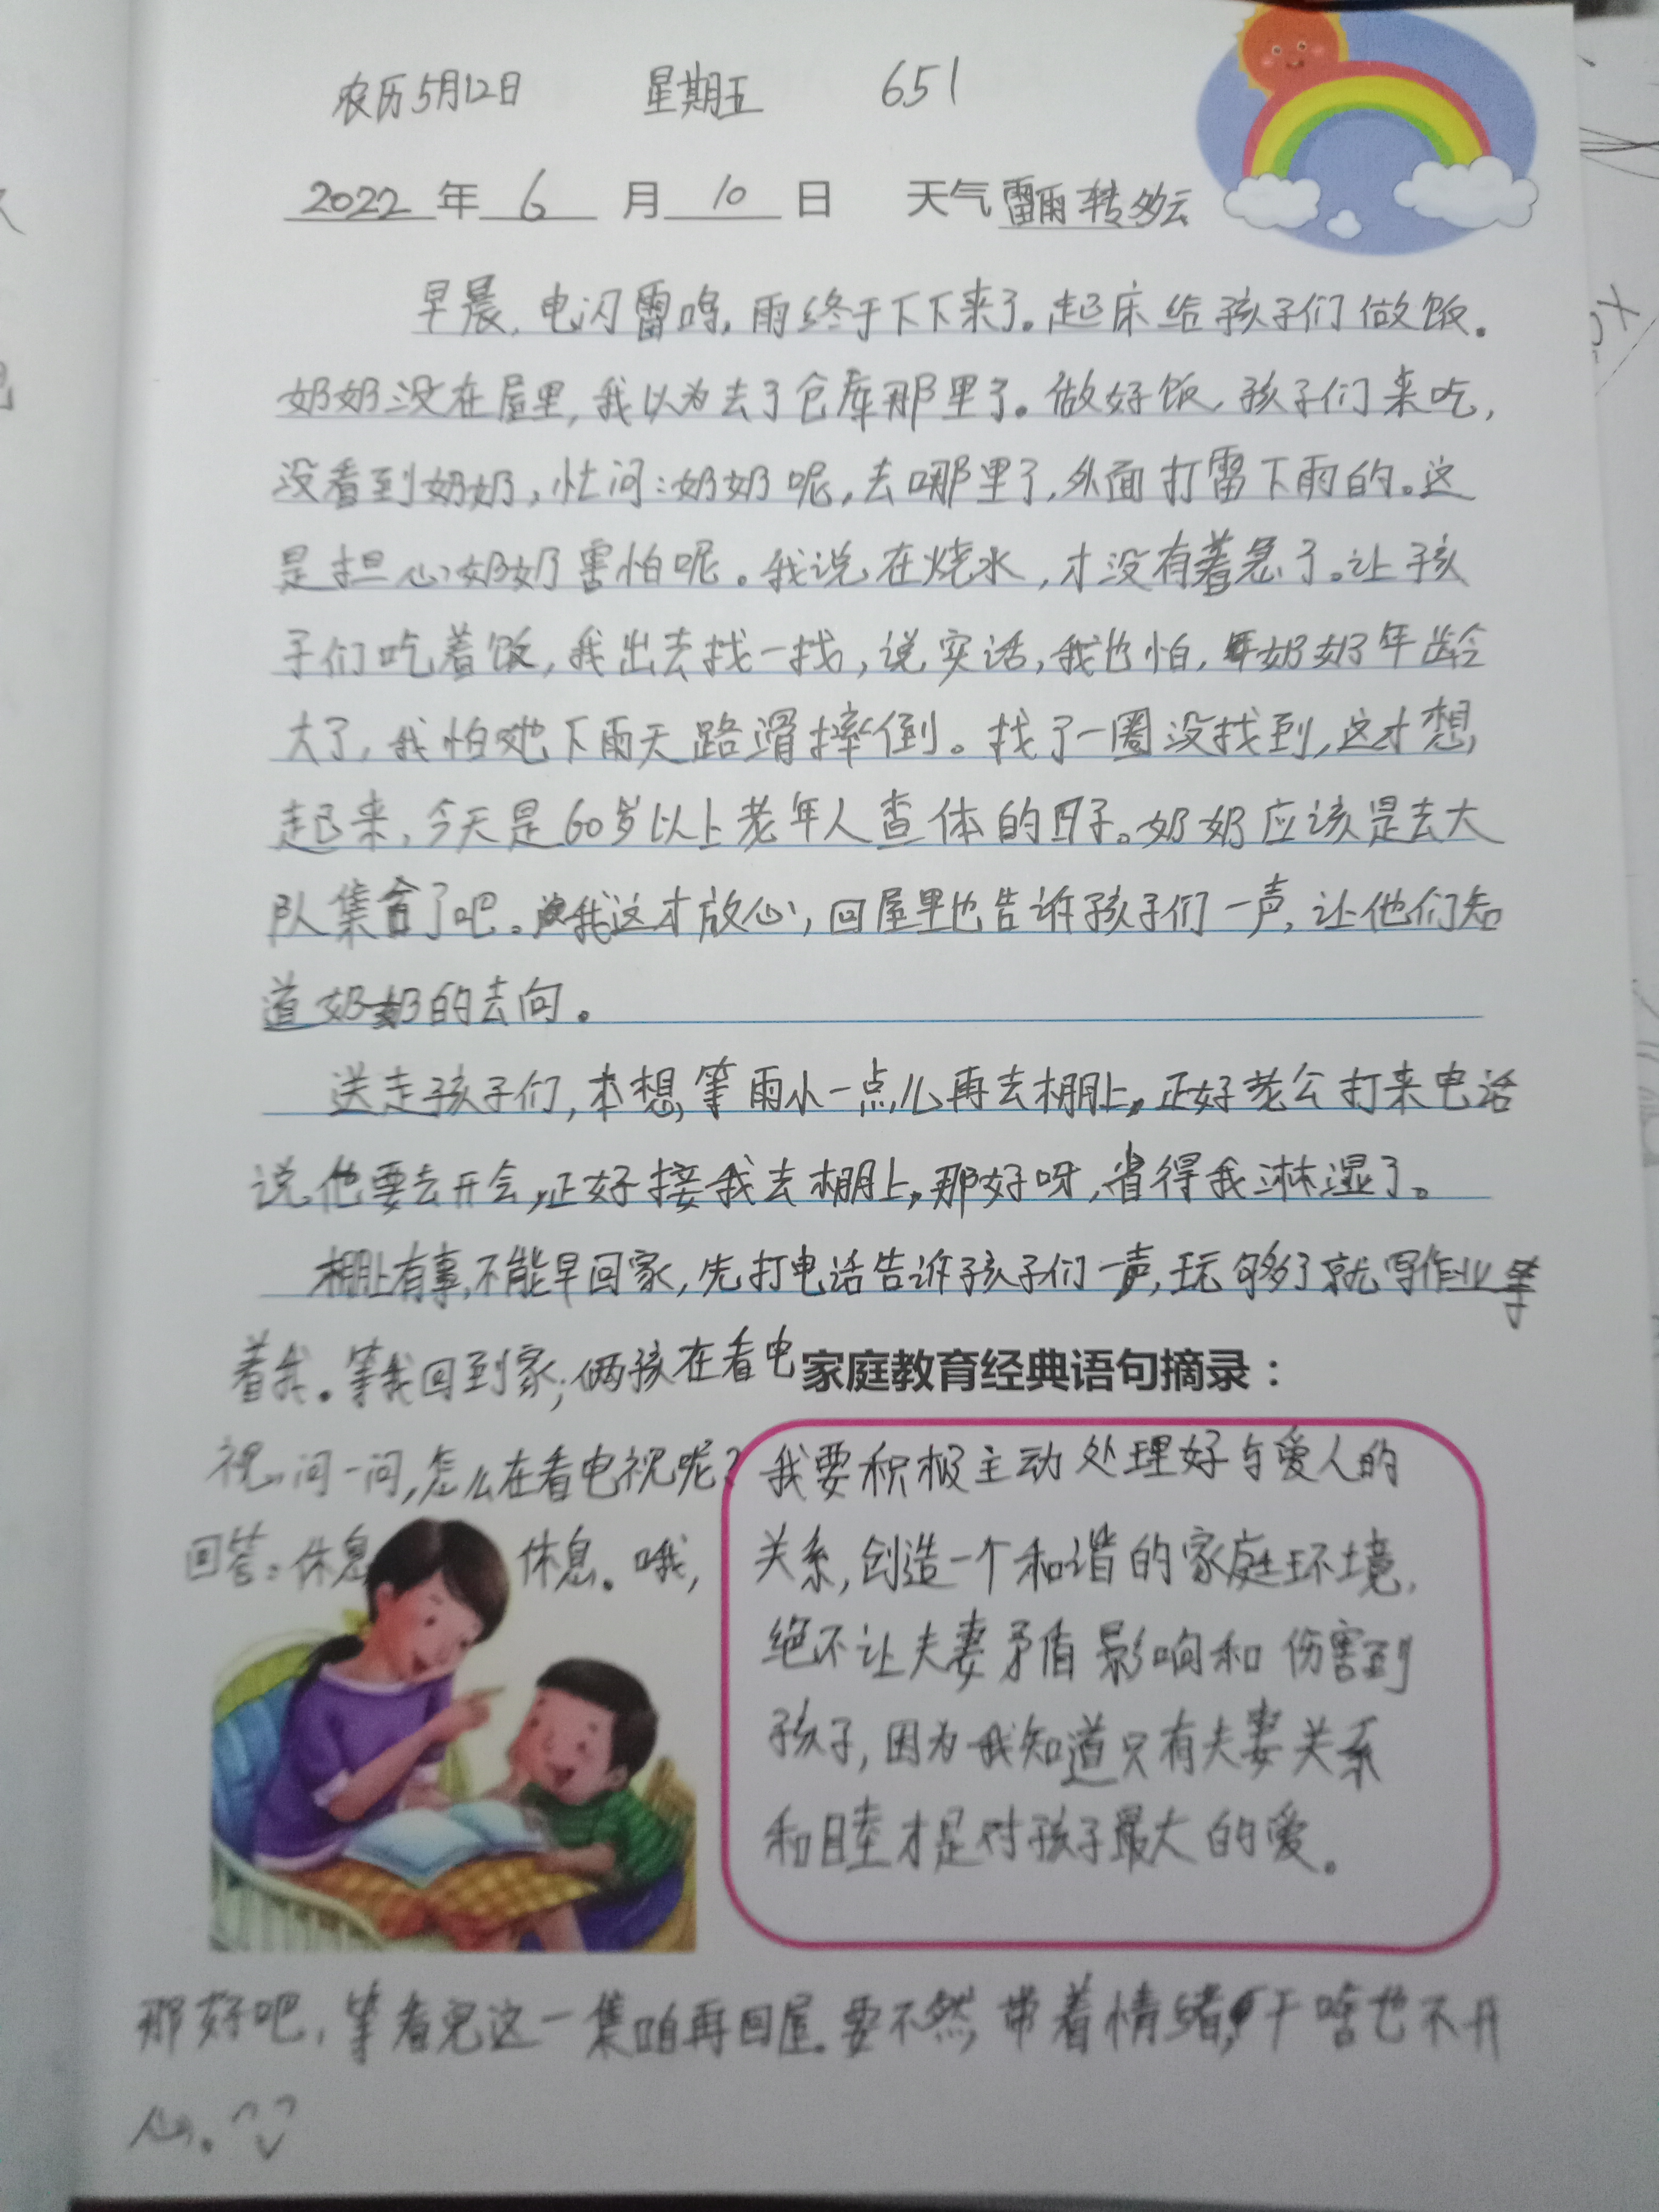 农历5月12日 星期五 651
2022年6月10日 天气雷雨转多云
早晨,电闪雷鸣,雨终于下下来了。起床给孩子们做饭。
奶奶没在屋里,我以为去了仓库那里了。做好饭,孩子们来吃,
没看到奶奶,忙问:奶奶呢,去哪里了,外面打雷下雨的。这
是担心奶奶害怕呢。我说在烧水,才没有着急了。让孩
子们吃着饭,我出去找一找,说实话,我也怕,奶奶年龄
大了,我怕她下雨天路滑摔倒。找了一圈没找到,这才想
起来,今天是60岁以上老年人查体的日子。奶奶应该是去大
队集合了吧。我这才放心,回屋里也告诉孩子们一声,让他们知
道奶奶的去向。
送走孩子们,本想等雨小一点儿再去棚上,正好老公打来电话
说他要去开会,正好接我去棚上,那好呀,省得我淋湿了。
棚上有事,不能早回家,先打电话告诉孩子们一声,玩够了就写作业等
着我。等我回到家,俩孩在看电
视,问一问,怎么在看电视呢?
回答:休息 休息。哦,
家庭教育经典语句摘录:
我要积极主动处理好与爱人的
关系,创造一个和谐的家庭环境,
绝不让夫妻矛盾影响和伤害到
孩子,因为我知道只有夫妻关系
和睦才是对孩子最大的爱。
那好吧,等看完这一集咱再回屋。要不然,带着情绪,干啥也不开
心。